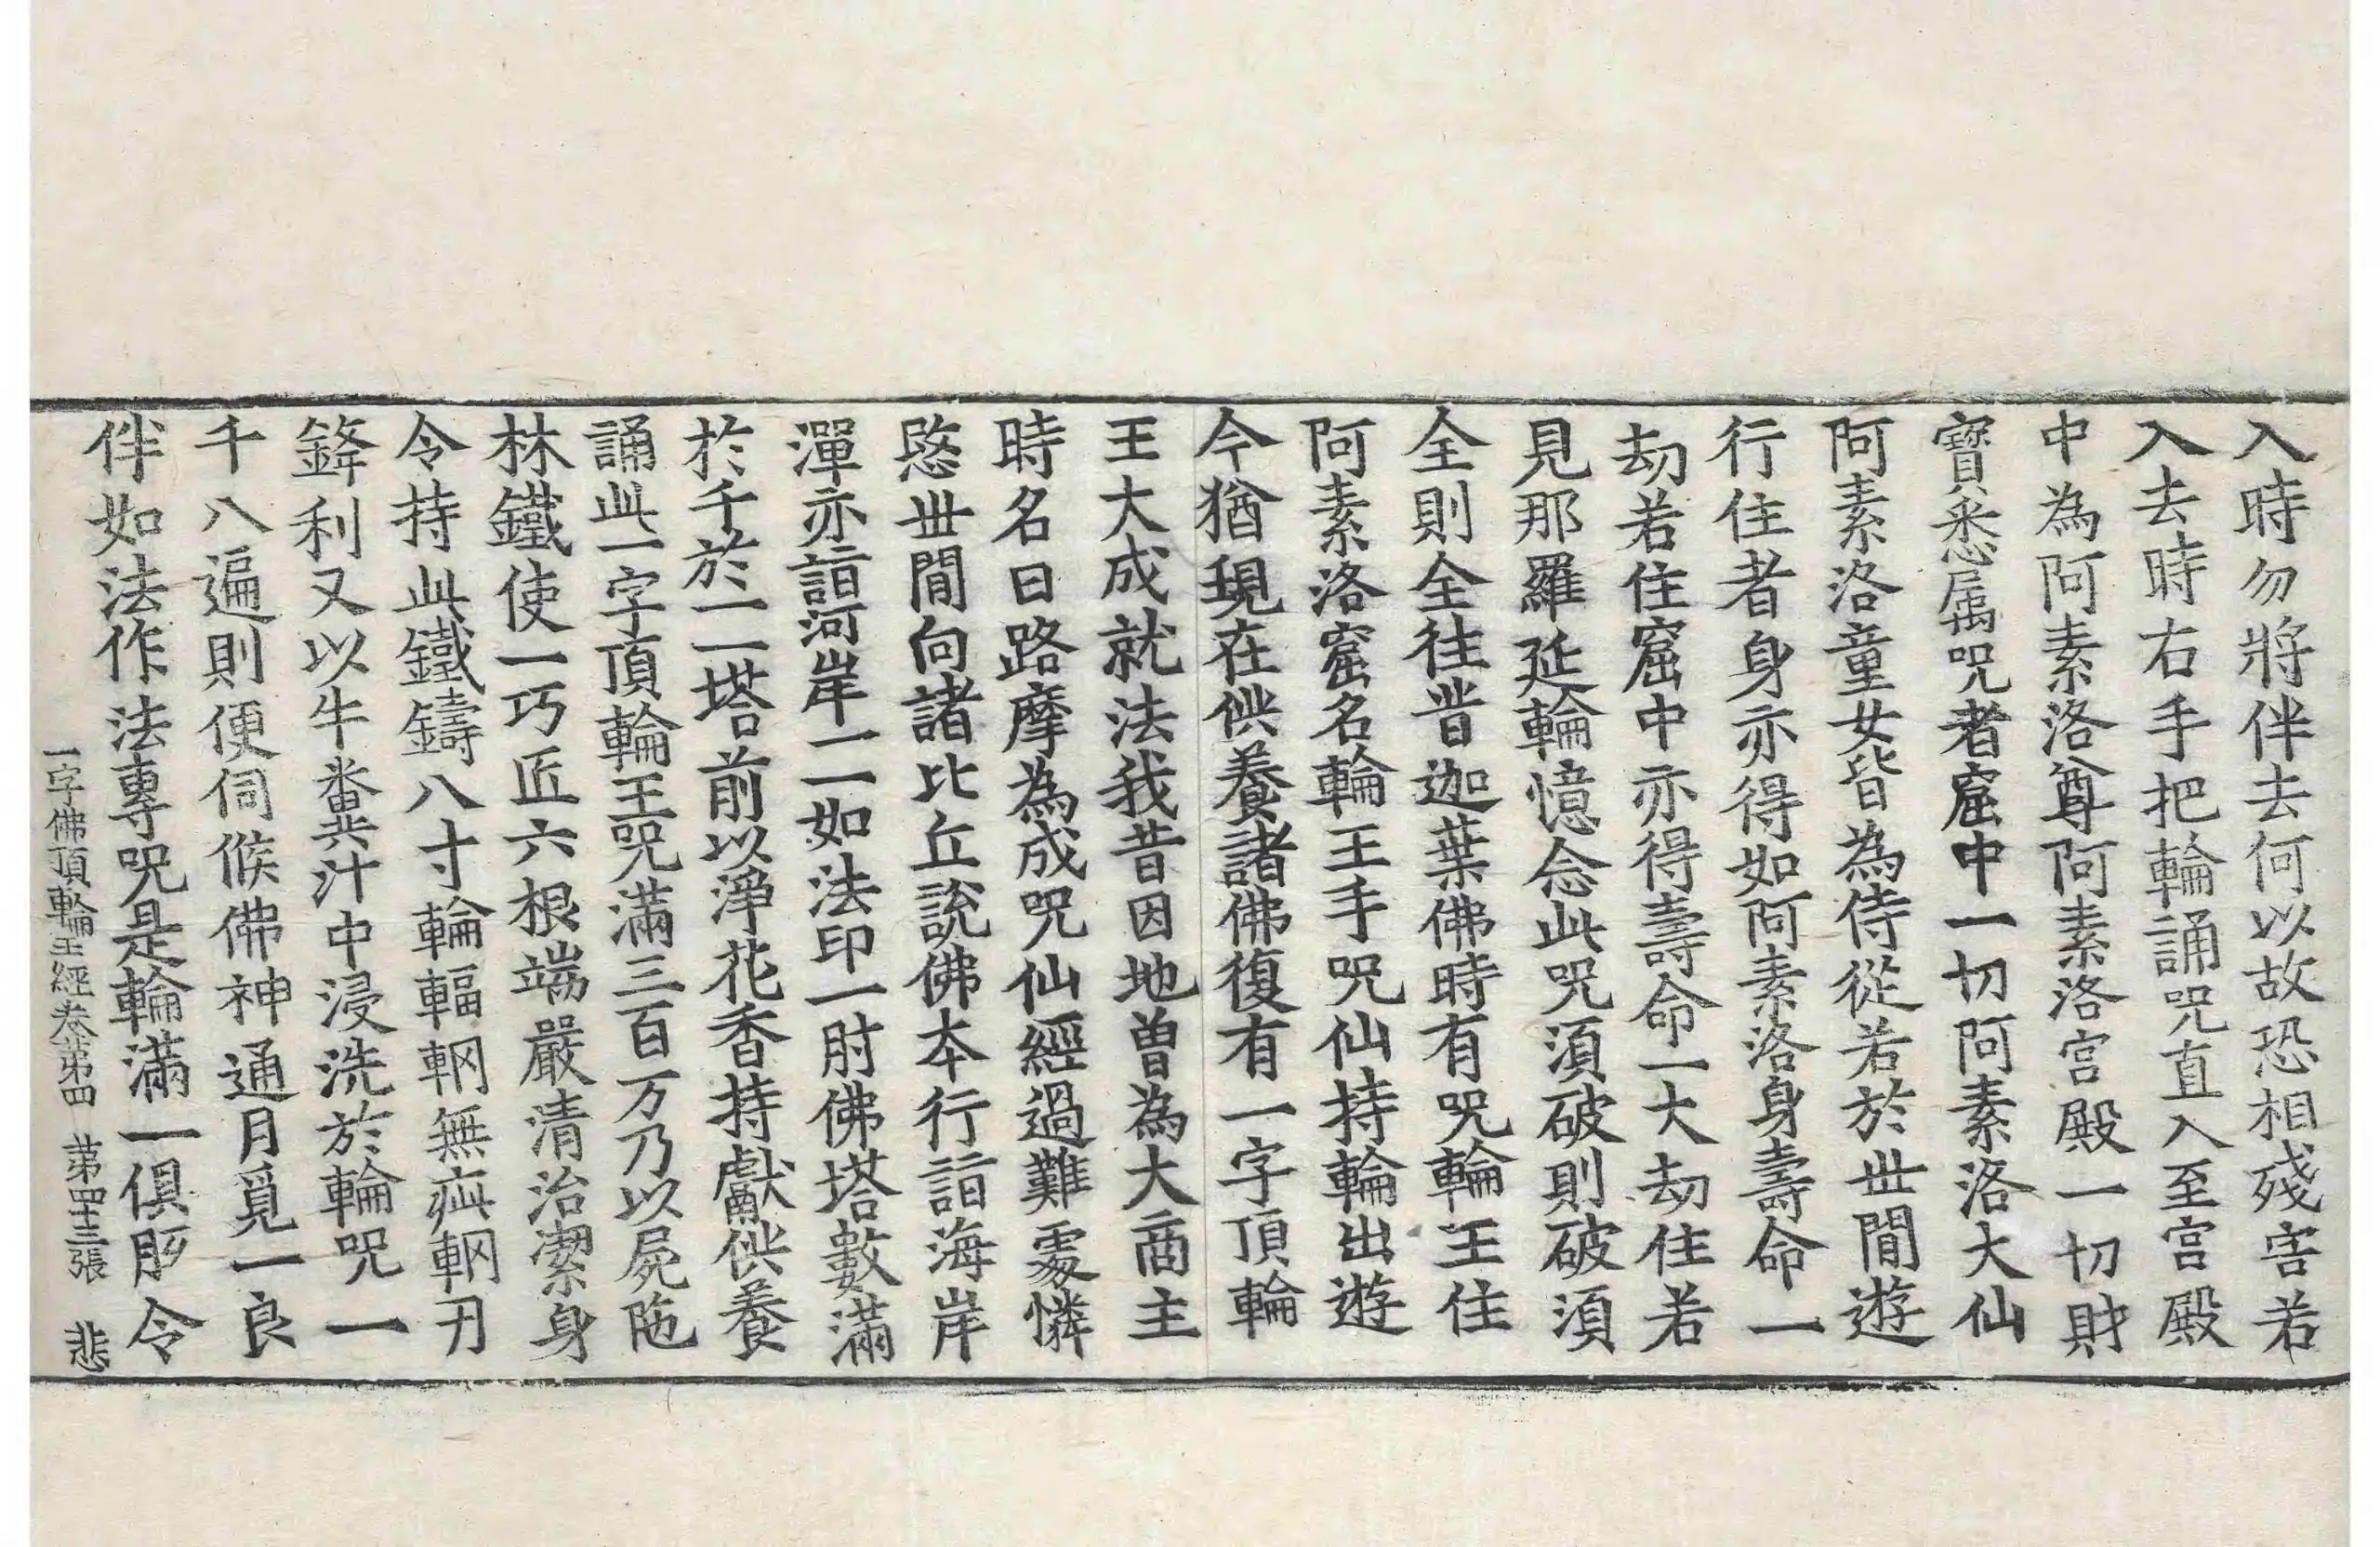 入時勿將伴去何以故恐相殘害若
入去時右手把輪誦呪直入至宮殿
中為阿素洛尊阿素洛宮殿一切財
寶悉属呪者窟中一切阿素洛大仙
阿素洛童女皆為侍從若於世間遊
行住者身亦得如阿素洛身壽命一
劫若住窟中亦得壽命一大劫住若
見那羅延輪憶念此呪須破則破須
全則全往昔迦葉佛時有呪輪王住
阿素洛窟名輪王手呪仙持輪出遊
今猶現在供養諸佛復有一字頂輪
王大成就法我昔因地曾為大商主
時名曰路摩為成呪仙經過難處憐
愍世間向諸比丘說佛本行詣海岸
潬亦詣河岸一一如法印一肘佛塔數滿
於千於一一塔前以淨花香持獻供養
誦此一字頂輪王呪滿三百万乃以屍陁
林鐵使一巧匠六根端嚴清治潔身
令持此鐵鑄八寸輪輻輞無疵輞刃
鋒利又以牛糞汁中浸洗於輪呪一
千八遍則便伺候佛神通月覓一良
伴如法作法專呪是輪滿一俱胝令
一字佛頂輪王經卷第四 第四十三張 悲